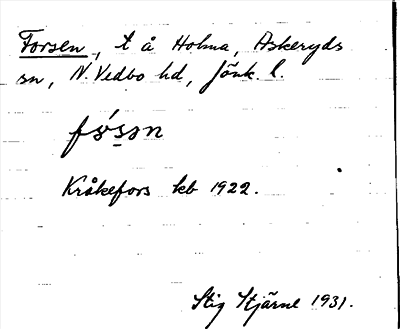 Forsen, t å Holma, Askeryds
sn, N. Vedbo hd, Jönk. l.
fɷ́s̠ən
Kråkefors kb 1922.
Stig Stjärne 1931.